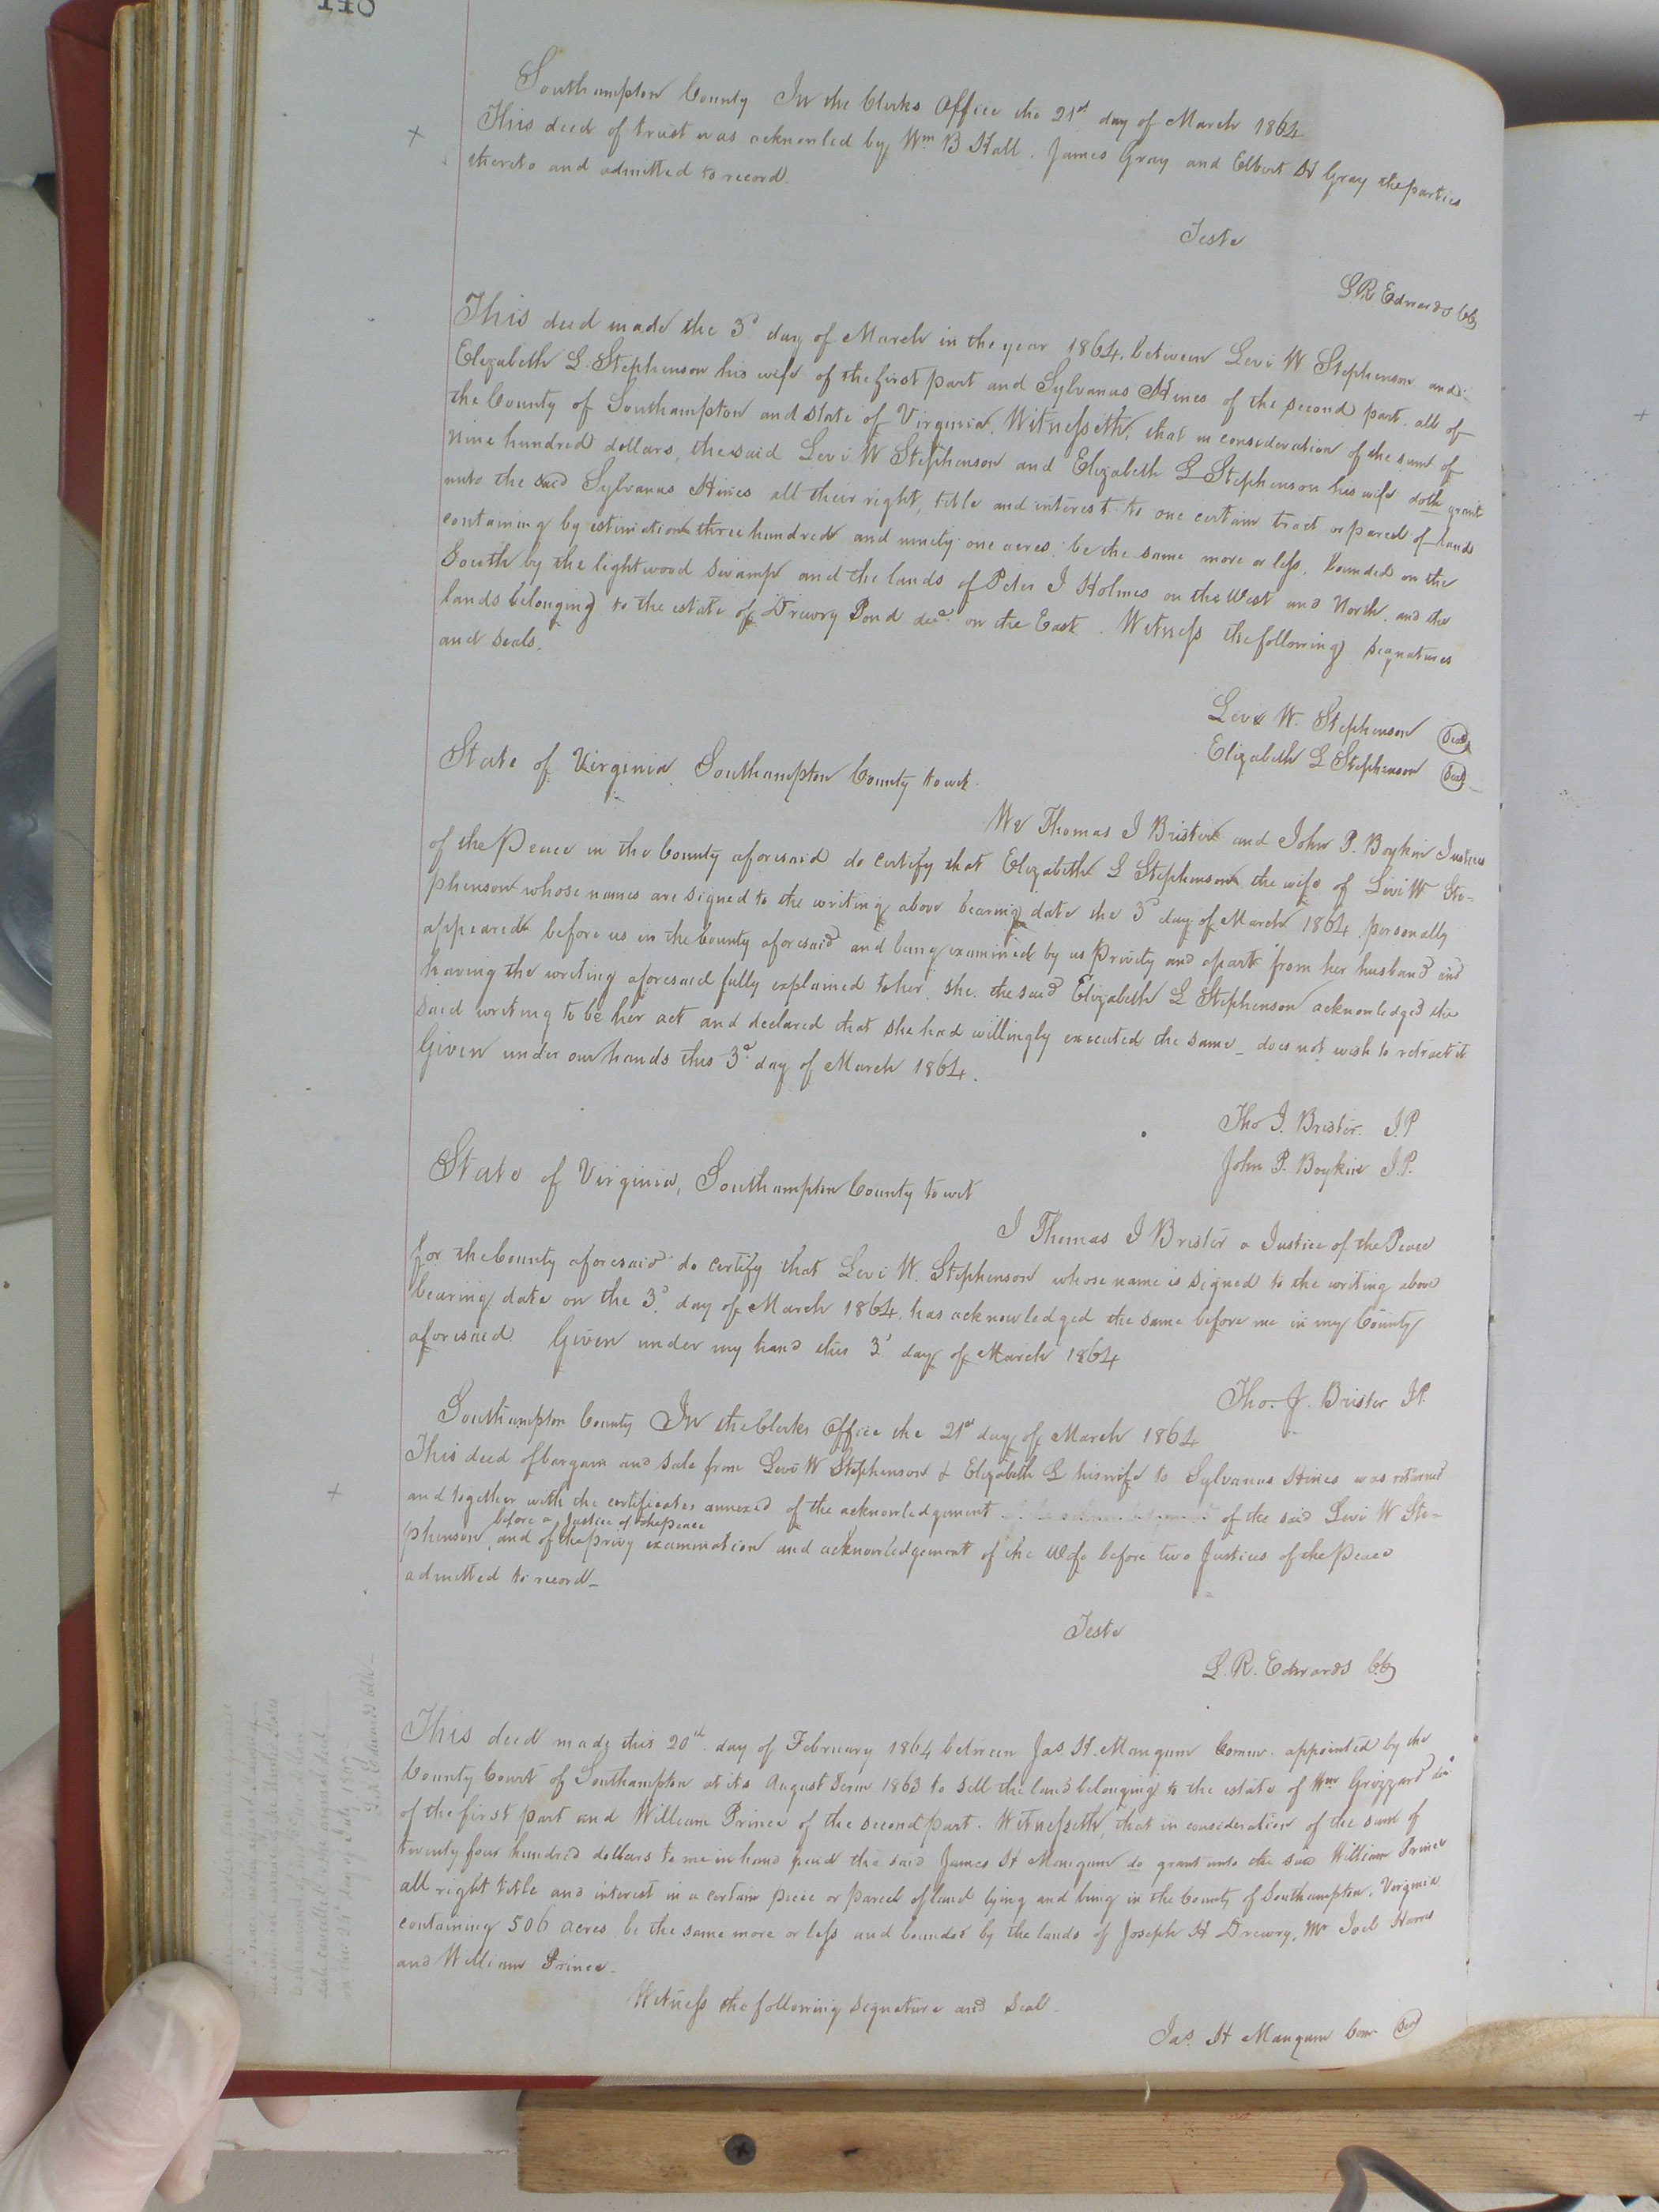 140
Southampton County In the Clerks Office the 21st day of March 1864
This deed of trust was acknowled by Wm B Hall. James Gray and Elbert H Gray the parties
thereto and admitted to record.
Teste
L R Edwards CC
This deed made the 3d day of March in the year 1864, between Levi W Stephenson and
Elizabeth L. Stephenson his wife of the first part and Sylvanus Hines of the second part. all of
the County of Southampton and State of Virginia, Witnesseth, that in consideration of the sum of
Nine hundred dollars, the said Levi W Stephenson and Elizabeth L Stephenson his wife doth grant
unto the said Sylvanus Hines all their right, title and interest to one certain tract or parcel of land
containing by estimation three hundred and ninety one acres be the same more or less, bounded on the
South by the lightwood swamp and the lands of Peter J Holmes on the West and North, and the
lands belonging to the estate of Drewry Pond decd on the East. Witness the following signatures
and seals.
Levi W. Stephenson Seal
Elizabeth L Stephenson Seal
State of Virginia Southampton County towit
We Thomas J Brister and John P. Boykin Justices
of the Peace in the County aforesaid do certify that Elizabeth L Stephenson the wife of Levi W Ste-
phenson whose names are signed to the writing above bearing date the 3d day of March 1864, personally
appeared before us in the County aforesaid and being examined by us Privity and apart from her husband and
having the writing aforesaid fully explained to her, she the said Elizabeth L Stephenson acknowledged the
said writing to be her act and declared that she had willingly executed the same_ does not wish to retract it
Given under our hands this 3d day of March 1864.
Tho J. Brister. J.P
John P. Boykin J.P.
State of Virginia, Southampton County towit
I Thomas J Brister a Justice of the Peace
for the County aforesaid do certify that Levi W. Stephenson whose name is signed to the writing above
bearing date on the 3d day of March 1864, has acknowledged the same before me in my County
aforesaid Given under my hand this 3d day of March 1864
Tho. J. Brister JP.
Southampton County In the Clerks Office the 21st day of March 1864
This deed of bargain and sale from Levi W Stephenson & Elizabeth L his wife to Sylvanus Hines was returned
and together with the certificates annexed of the acknowledgement of the said Levi W Ste-
before a Justice of the peace
phenson, and of the privy examination and acknowledgement of the wife before two Justices of the Peace
admitted to record_
Teste
L. R. Edwards CC
This deed made this 20th day of February 1864 between Jas H. Mangum Comr. appointed by the
County Court of Southampton at its August Term 1863 to sell the land belonging to the estate of Wm Grizzard
of the first part and William Prince of the second part. Witnesseth, that in consideration of the sum of
twenty four hundred dollars to me in hand paid the said James H Mangum do grant unto the said William Prince
all right title and interest in a certain piece or parcel of land lying and being in the County of Southampton, Virginia
containing 506 acres be the same more or less and bounded by the lands of Joseph H Drewry, Mr Joel Harris
and William Prince.
Witness the following signature and Seal.
Jas. H Mangum Com Seal